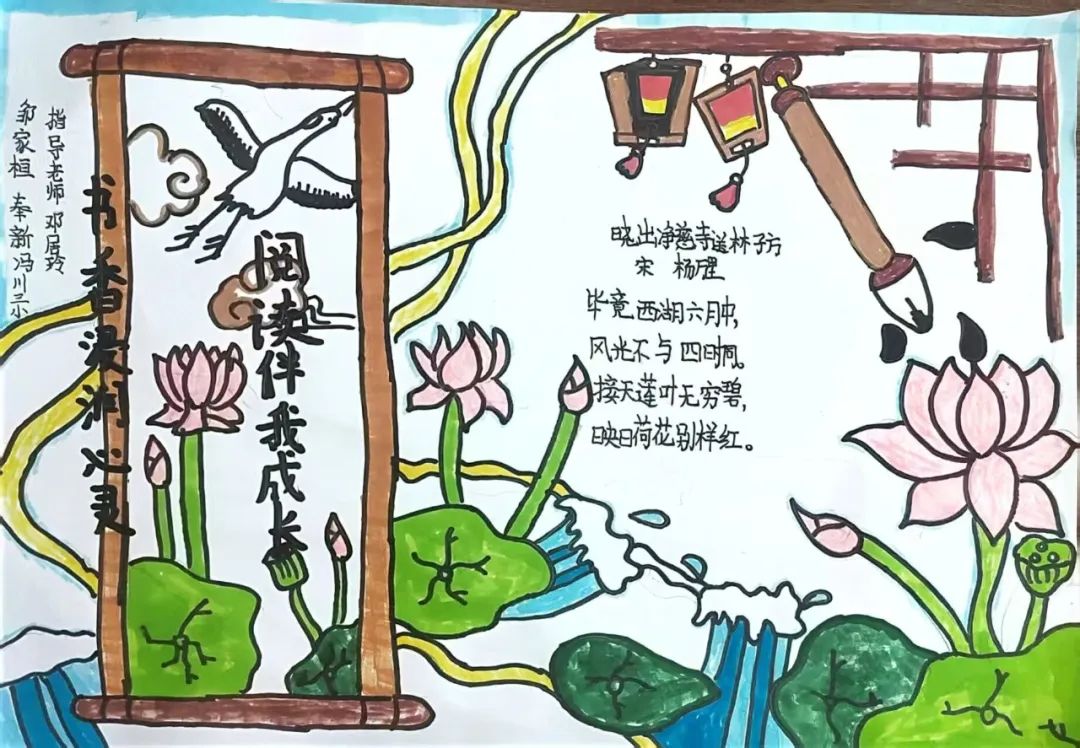 指导老师 邓居玲
邹家桓 奉新冯川三小
书香浸润心灵
阅读伴我成长
晓出净慈寺送林子方
宋 杨万里
毕竟西湖六月中,
风光不与四时同。
接天莲叶无穷碧,
映日荷花别样红。